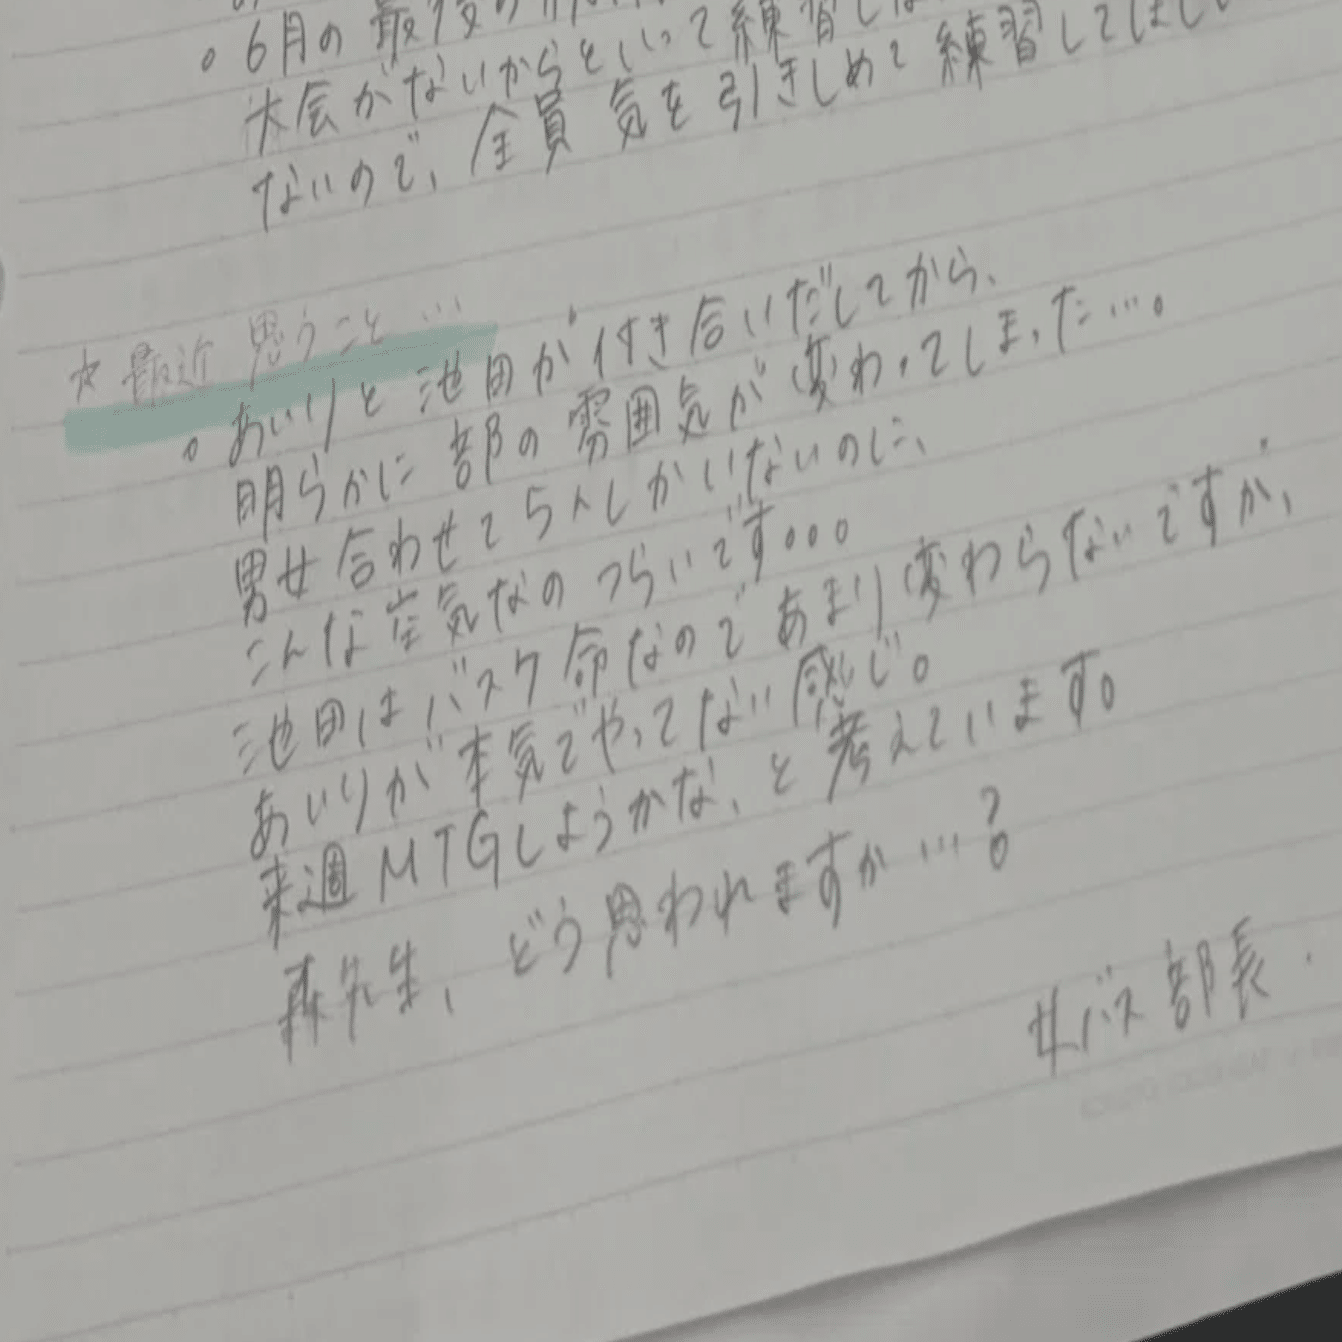 。6月の最後の
大会がないからといって練習しな
ないので、全員 気を引きしめて練習してほし
☆最近思うこと…
。あいりと池田が付き合いだしてから、
明らかに部の雰囲気が変わってしまった…。
男女合わせて5人しかいないのに、
こんな空気なのつらいです。。。
池田はバスケ命なのであまり変わらないですが、
あいりが本気でやってない感じ。
来週MTGしようかな、と考えています。
森先生、どう思われますか…?
女バス部長.